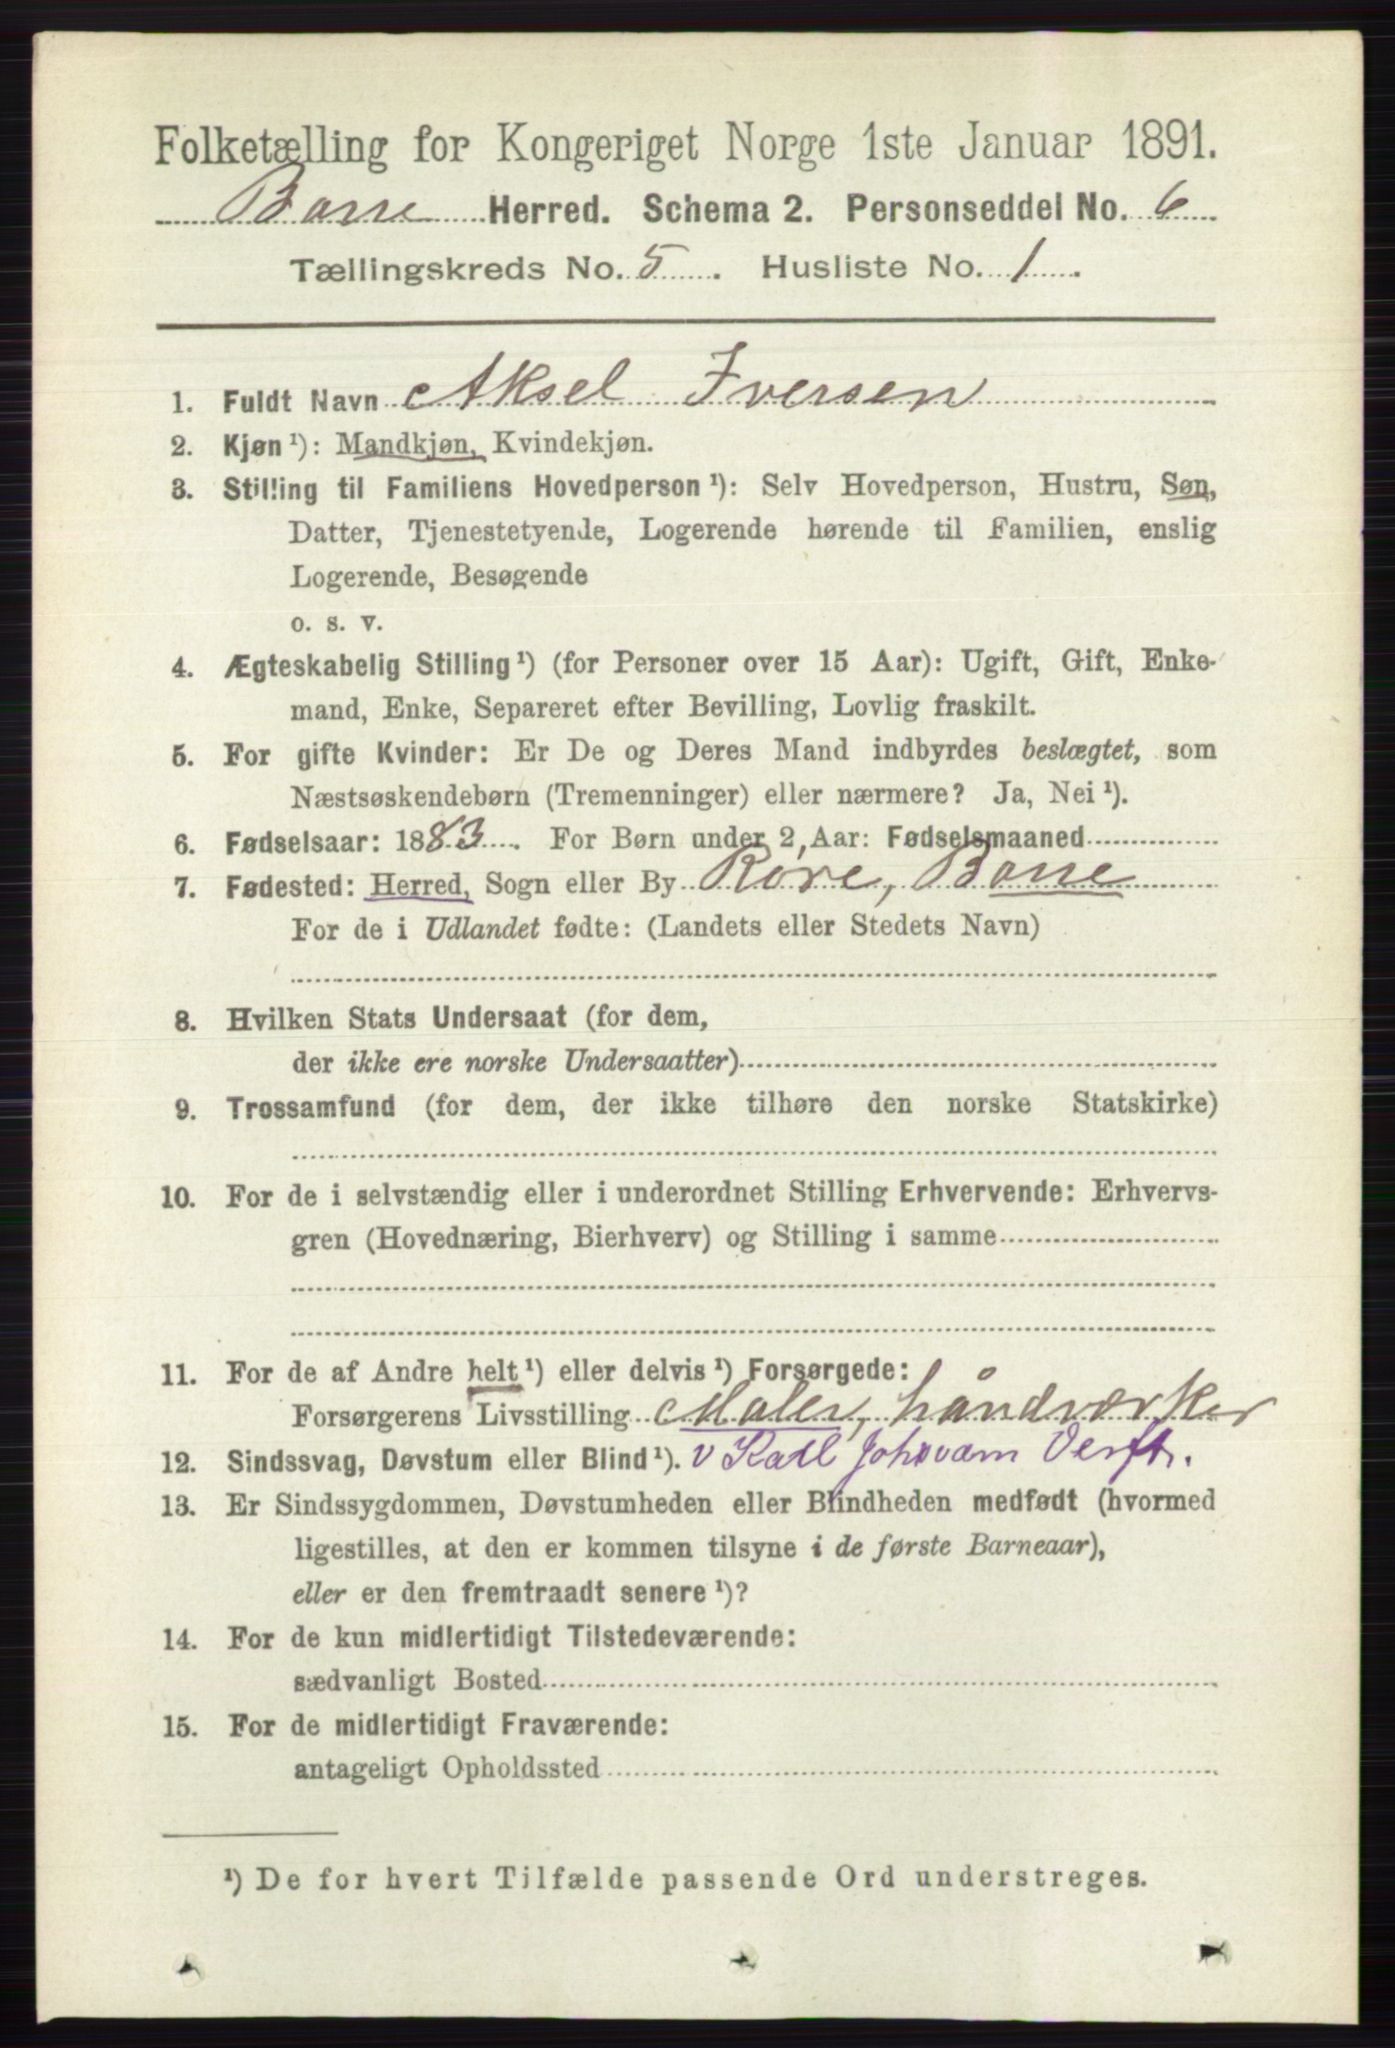 Folketælling for Kongeriget Norge 1ste Januar 1891.
Borre Herred. Schema 2. Personseddel No. 6
Tællingskreds No. 5. Husliste No. 1.
1. Fuldt Navn Aksel Iversen
2. Kjøn ¹): Mandkjøn, Kvindekjøn.
3. Stilling til Familiens Hovedperson ¹): Selv Hovedperson, Hustru, Søn,
Datter, Tjenestetyende, Logerende hørende til Familien, enslig
Logerende, Besøgende
o. s. v.
4. Ægteskabelig Stilling ¹) (for Personer over 15 Aar): Ugift, Gift, Enke-
mand, Enke, Separeret efter Bevilling, Lovlig fraskilt.
5. For gifte Kvinder: Er De og Deres Mand indbyrdes beslægtet, som
Næstsøskendebørn (Tremenninger) eller nærmere? Ja, Nei ¹).
6. Fødselsaar: 1883. For Børn under 2 Aar: Fødselsmaaned
7. Fødested: Herred, Sogn eller By Røre, Borre
For de i Udlandet fødte: (Landets eller Stedets Navn)
8. Hvilken Stats Undersaat (for dem,
der ikke ere norske Undersaatter)
9. Trossamfund (for dem, der ikke tilhøre den norske Statskirke)
10. For de i selvstændig eller i underordnet Stilling Erhvervende: Erhvervs-
gren (Hovednæring, Bierhverv) og Stilling i samme
11. For de af Andre helt ¹) eller delvis ¹) Forsørgede:
Forsørgerens Livsstilling Maler, håndværker
12. Sindssvag, Døvstum eller Blind ¹). v Karl Johsvarn Verft.
13. Er Sindssygdommen, Døvstumheden eller Blindheden medfødt (hvormed
ligestilles, at den er kommen tilsyne i de første Barneaar),
eller er den fremtraadt senere ¹)?
14. For de kun midlertidigt Tilstedeværende:
sædvanligt Bosted
15. For de midlertidigt Fraværende:
antageligt Opholdssted
¹) De for hvert Tilfælde passende Ord understreges.